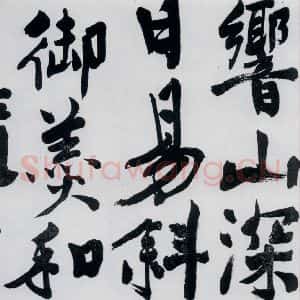 響山深
日易斜
御羨和
Shufawang.CN